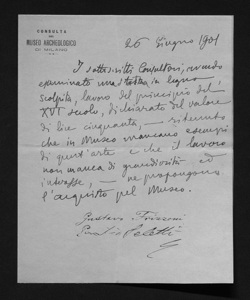 CONSULTA
DEL
MUSEO ARCHEOLOGICO
DI MILANO
26 Giugno 1901
I sottoscritti Consultori, avendo
esaminato una testa in legno
scolpita, lavoro del principio del
XVI secolo, dichiarata del valore
di lire cinquanta, — ritenuto
che in Museo mancano esempi
di quest'arte e che il lavoro
non manca di grandiosità ed
interesse, — ne propongono
l'acquisto pel Museo.
Gustavo Frizzoni